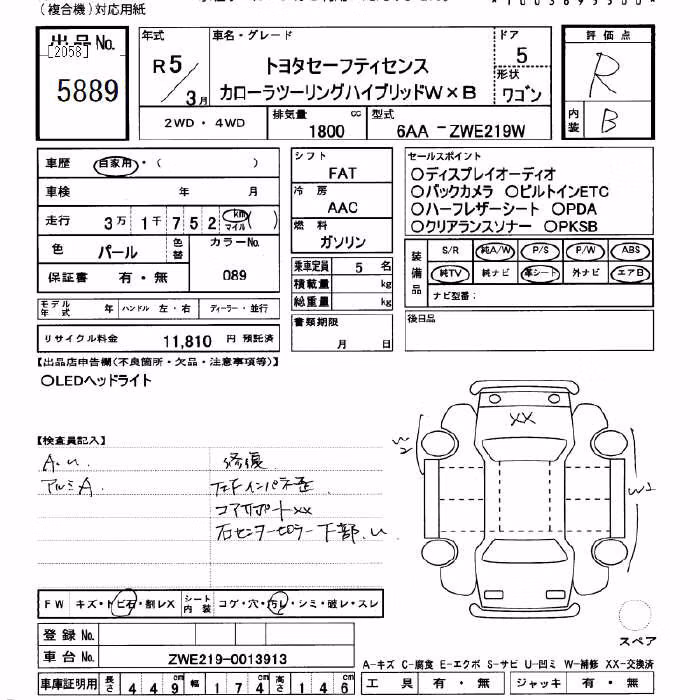 (複合機)対応用紙
出品No.
[2058]
5889
年式
R5/3月
車名・グレード
トヨタセーフティセンス
カローラツーリングハイブリッドW×B
ドア
5
形状
ワゴン
評価点
R
内装
B
2WD・4WD
排気量
1800
cc
型式
6AA -ZWE219W
車歴
自家用・( )
車検 年 月
走行 3万 1千 7 5 2 km マイル ( )
色 パール 色替
カラーNo.
089
保証書 有・無
シフト
FAT
冷房
AAC
燃料
ガソリン
乗車定員 5 名
積載量 kg
総重量 kg
セールスポイント
○ディスプレイオーディオ
○バックカメラ ○ビルトインETC
○ハーフレザーシート ○PDA
○クリアランスソナー ○PKSB
装備品
S/R 純A/W P/S P/W ABS
純TV 純ナビ 革シート 外ナビ エアB
ナビ型番:
モデル年式 年 ハンドル 左・右 ディーラー・並行
リサイクル料金 11,810 円 預託済
書類期限
月 日
後日品
【出品店申告欄(不良箇所・欠品・注意事項等)】
○LEDヘッドライト
【検査員記入】
A.u.
アルミA
修復
コアサポートxx
右センターピラー下部.u
XX
W2
W2
FW キズ・トビ石・割レX
シート内装 コゲ・穴・汚レ・シミ・破レ・スレ
登録No.
車台No. ZWE219-0013913
スペア
A-キズ C-腐食 E-エクボ S-サビ U-凹ミ W-補修 XX-交換済
車庫証明用 長さ 4 4 9 幅 1 7 4 高さ 1 4 6
工具 有・無 ジャッキ 有・無